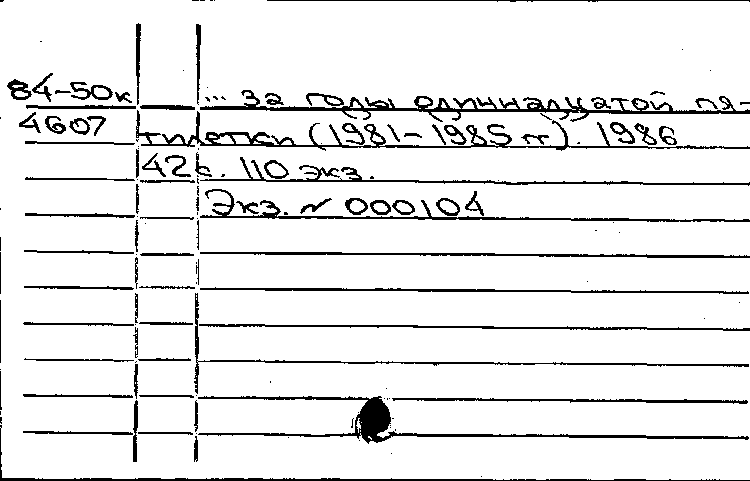 84-50к ... за годы одиннадцатой пя-
4607 тилетки (1981-1985 гг). 1986
42с. 110 экз.
Экз. № 000104